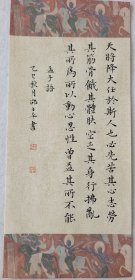 天將降大任於斯人也必先苦其心志勞
其筋骨餓其體膚空乏其身行拂亂
其所為所以動心忍性曾益其所不能
孟子語
乙巳秋月
書